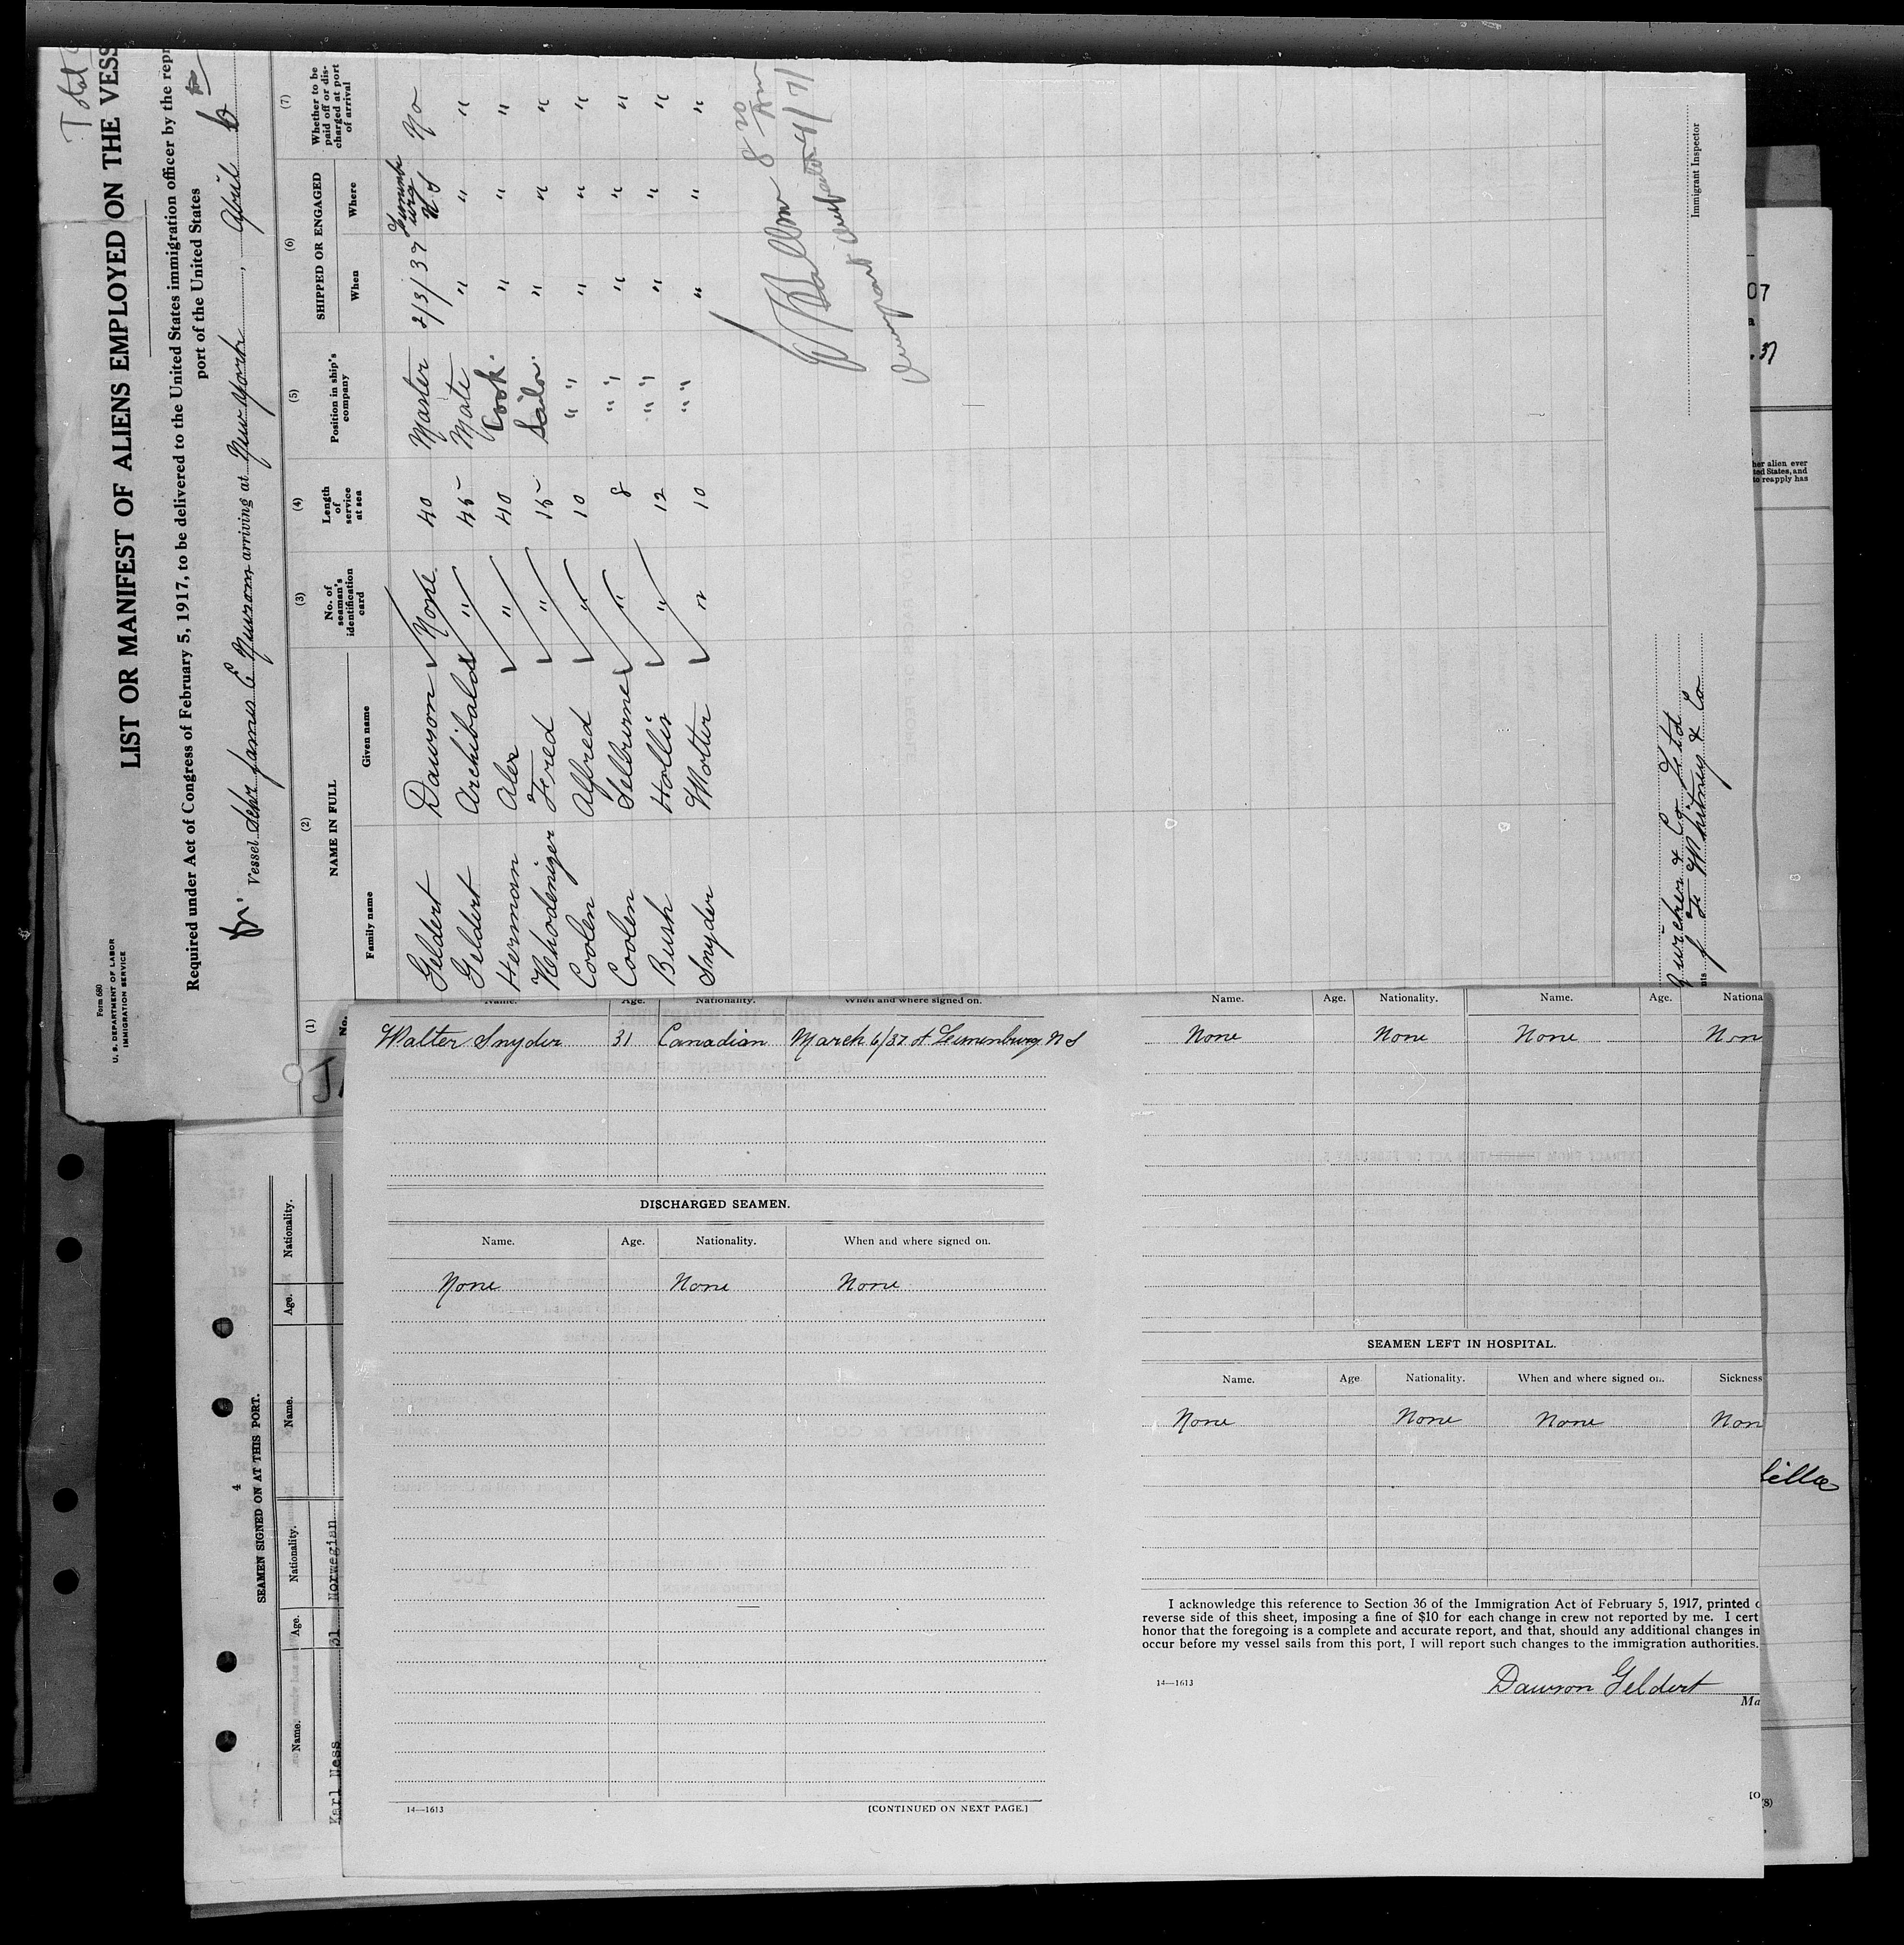 Form 680
U. S. DEPARTMENT OF LABOR
IMMIGRATION SERVICE
Total
LIST OR MANIFEST OF ALIENS EMPLOYED ON THE VESS
Required under Act of Congress of February 5, 1917, to be delivered to the United States immigration officer by the repr
port of the United States
Vessel Schr James E Newsom arriving at New York, April 6
(1) (2) (3) (4) (5) (6) (7)
No. NAME IN FULL No. of seaman's identification card Length of service at sea Position in ship's company SHIPPED OR ENGAGED Whether to be paid off or discharged at port of arrival
Family name Given name When Where
Geldert Dawson None 40 Master 2/3/37 Lunenburg N S No
Geldert Archibald " 45 Mate " " "
Herman Alex " 40 Cook " " "
Whodeniger Fred " 15 Sailor " " "
Coolen Alfred " 10 " " " " "
Coolen Selburne " 8 " " " " "
Bush Hollis " 12 " " " " "
Snyder Wolter " 10 " " " " "
8 20 Am
4/7/
Immigrant Inspector
Zwicker & Co Ltd
J F Whitney & Co
07
a
. 37
her alien ever
ted States, and
to reapply has
Name. Age. Nationality. When and where signed on.
Walter Snyder 31 Canadian March 6/37 at Lunenburg N S
DISCHARGED SEAMEN.
Name. Age. Nationality. When and where signed on.
None None None
14—1613 [CONTINUED ON NEXT PAGE.]
Name. Age. Nationality. Name. Age. Nationa
None None None Non
SEAMEN LEFT IN HOSPITAL.
Name. Age Nationality. When and where signed on. Sickness
None None None Non
I acknowledge this reference to Section 36 of the Immigration Act of February 5, 1917, printed o
reverse side of this sheet, imposing a fine of $10 for each change in crew not reported by me. I cert
honor that the foregoing is a complete and accurate report, and that, should any additional changes in
occur before my vessel sails from this port, I will report such changes to the immigration authorities.
14—1613
Dawson Geldert
Ma
[O
4
SEAMEN SIGNED ON AT THIS PORT.
Name. Age. Nationality. Name. Age. Nationality.
Karl Ness 31 Norwegian